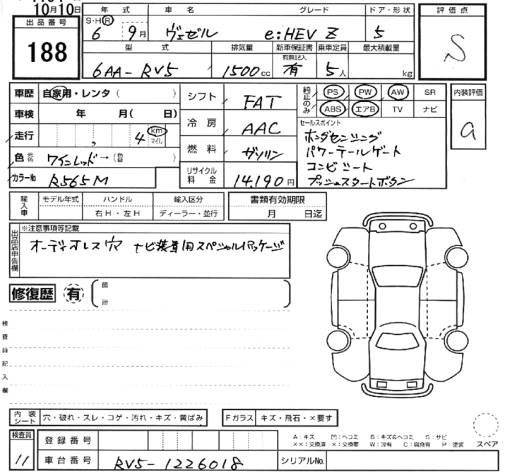 10月10日
出品番号 188
年式 S・H・R 6年 9月
車名 ヴェゼル
グレード e:HEV Z
ドア・形状 5
評価点 S
型式 6AA-RV5
排気量 1500cc
新車保証書 有
乗車定員 5人
最大積載量 kg
車歴 自家用・レンタ( )
シフト FAT
純正のみ PS PW AW SR
ABS エアB TV ナビ
内装評価 a
車検 年 月( 日)
冷房 AAC
セールスポイント
ホンダセンシング
パワーテールゲート
コンビシート
プッシュスタートボタン
走行 4 km マイル
燃料 ガソリン
色 ワインレッド→
カラーNo R565M
リサイクル料金 14,190円
輸入車 モデル年式 ハンドル 右H・左H 輸入区分 ディーラー・並行
書類有効期限 月 日迄
※注意事項等記載
オーディオレス車 ナビ装着用スペシャルパッケージ
修復歴 有 箇所
検査員記入欄
内装シート 穴・破れ・スレ・コゲ・汚れ・キズ・黄ばみ
Fガラス キズ・飛石・×要す
スペア
検査員 11
登録番号
車台番号 RV5-1226018
シリアルNo.